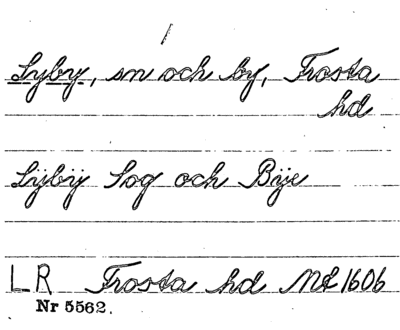 Lyby, sn och by, Frosta
hd
Lÿbÿ Sog och Bÿe
LR Frosta hd Mt 1606
Nr 5562.